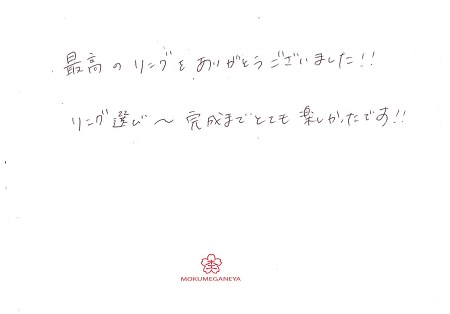 最高のリングをありがとうございました!!
リング選び〜完成までとても楽しかったです!!
MOKUMEGANEYA